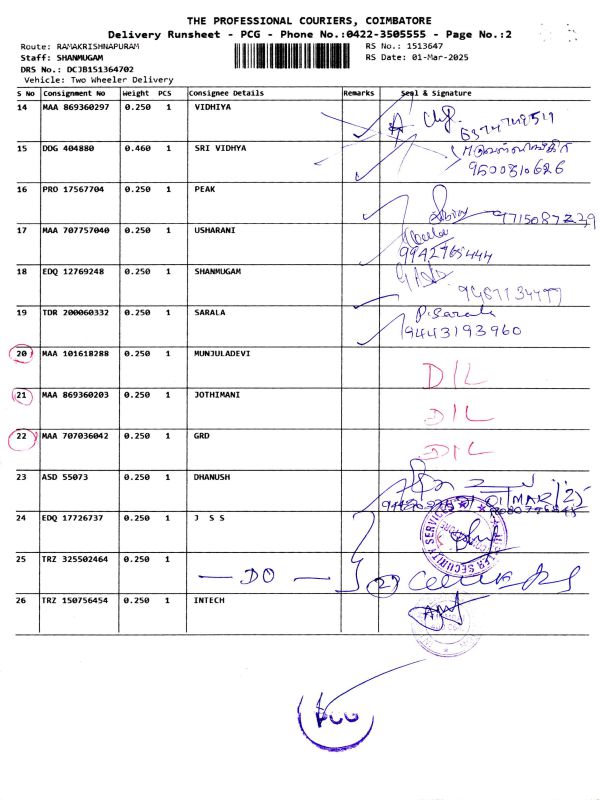 THE PROFESSIONAL COURIERS, COIMBATORE
Delivery Runsheet - PCG - Phone No.:0422-3505555 - Page No.:2
Route: RAMAKRISHNAPURAM RS No.: 1513647
Staff: SHANMUGAM RS Date: 01-Mar-2025
DRS No.: DCJB151364702
Vehicle: Two Wheeler Delivery
S No Consignment No Weight PCS Consignee Details Remarks Seal & Signature
14 MAA 869360297 0.250 1 VIDHIYA
15 DDG 404880 0.460 1 SRI VIDHYA
9500810626
16 PRO 17567704 0.250 1 PEAK
9715087239
17 MAA 707757040 0.250 1 USHARANI
9942765444
18 EDQ 12769248 0.250 1 SHANMUGAM
19 TDR 200060332 0.250 1 SARALA P. Sarala
9443193960
20 MAA 101618288 0.250 1 MUNJULADEVI
D/L
21 MAA 869360203 0.250 1 JOTHIMANI
D/L
22 MAA 707036042 0.250 1 GRD
D/L
23 ASD 55073 0.250 1 DHANUSH
24 EDQ 17726737 0.250 1 J S S
25 TRZ 325502464 0.250 1
— DO —
26 TRZ 150756454 0.250 1 INTECH
PCG